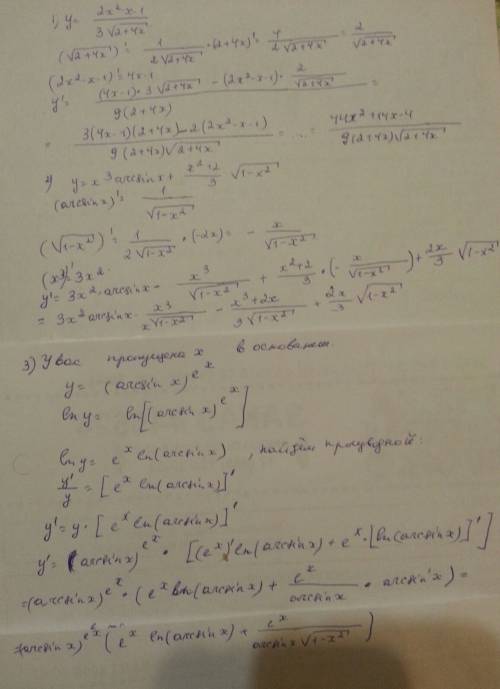 1) y = (2x²-x-1)/(3√(2+4x))
(√(2+4x))' = 1/(2√(2+4x)) · (2+4x)' = 4/(2√(2+4x)) = 2/√(2+4x)
(2x²-x-1)' = 4x-1
y' = ((4x-1)·3√(2+4x) - (2x²-x-1)· 2/√(2+4x))/(9(2+4x)) =
= (3(4x-1)(2+4x) - 2(2x²-x-1))/(9(2+4x)√(2+4x)) = ... = (44x²+14x-4)/(9(2+4x)√(2+4x))
2) y = x³arcsinx + (x²+2)/3 √(1-x²)
(arcsinx)' = 1/√(1-x²)
(√(1-x²))' = 1/(2√(1-x²)) · (-2x) = - x/√(1-x²)
(x³)' = 3x²
y' = 3x²·arcsinx - x³/√(1-x²) + (x²+2)/3 · (- x/√(1-x²)) + 2x/3 √(1-x²)
= 3x²arcsinx · x³/√(1-x²) - (x³+2x)/(3√(1-x²)) + 2x/3 √(1-x²)
3) У вас пропущена x в основании.
y = (arcsin x)^(e^x)
ln y = ln[(arcsin x)^(e^x)]
ln y = e^x ln(arcsin x) , найдём производной:
y'/y = [e^x ln(arcsin x)]'
y' = y · [e^x ln(arcsin x)]'
y' = (arcsin x)^(e^x) · [(e^x)' ln(arcsin x) + e^x · [ln(arcsin x)]']
= (arcsin x)^(e^x) · (e^x ln(arcsin x) + e^x/arcsin x · arcsin'x) =
= (arcsin x)^(e^x) (e^x ln(arcsin x) + e^x/(arcsin x √(1-x²)))